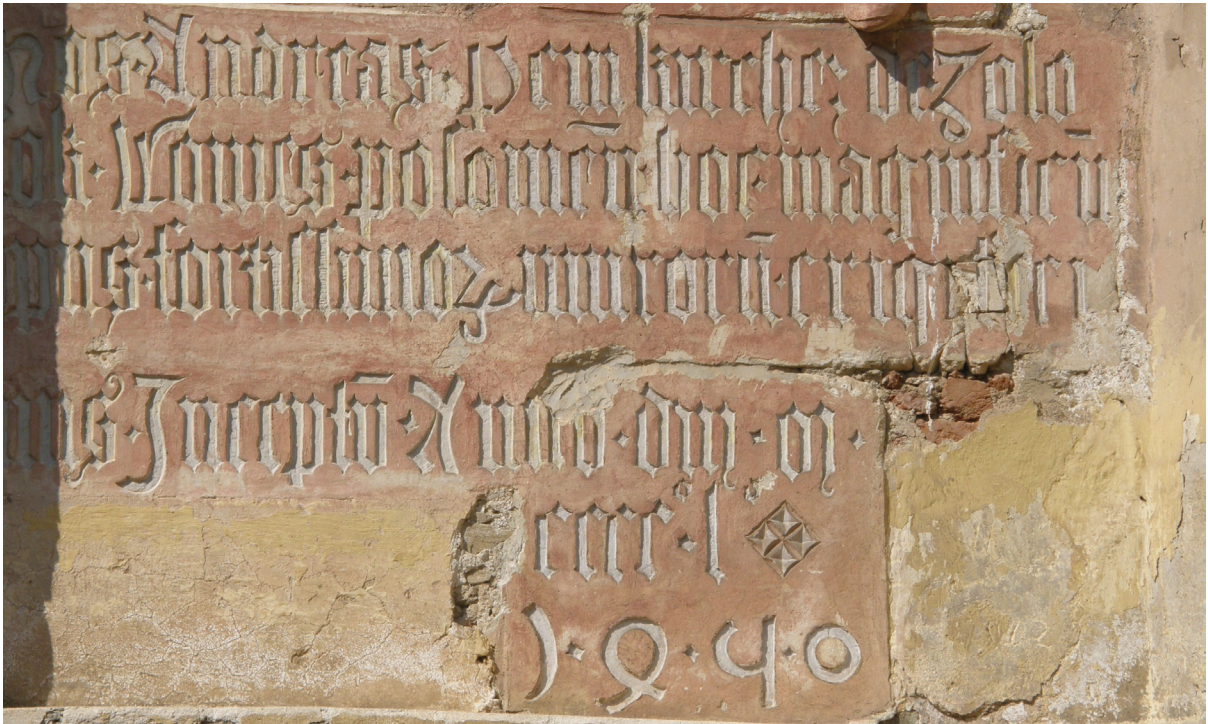 Nos Andreas pemkircher de zolō
Comes · posoniēn hoc · magnificū
opus · fortissimoꝝ murorū · erigi feci
mus · Inceptū · Anno · dnī · m ·
cccc · l
1 · 4 · 5 · 0